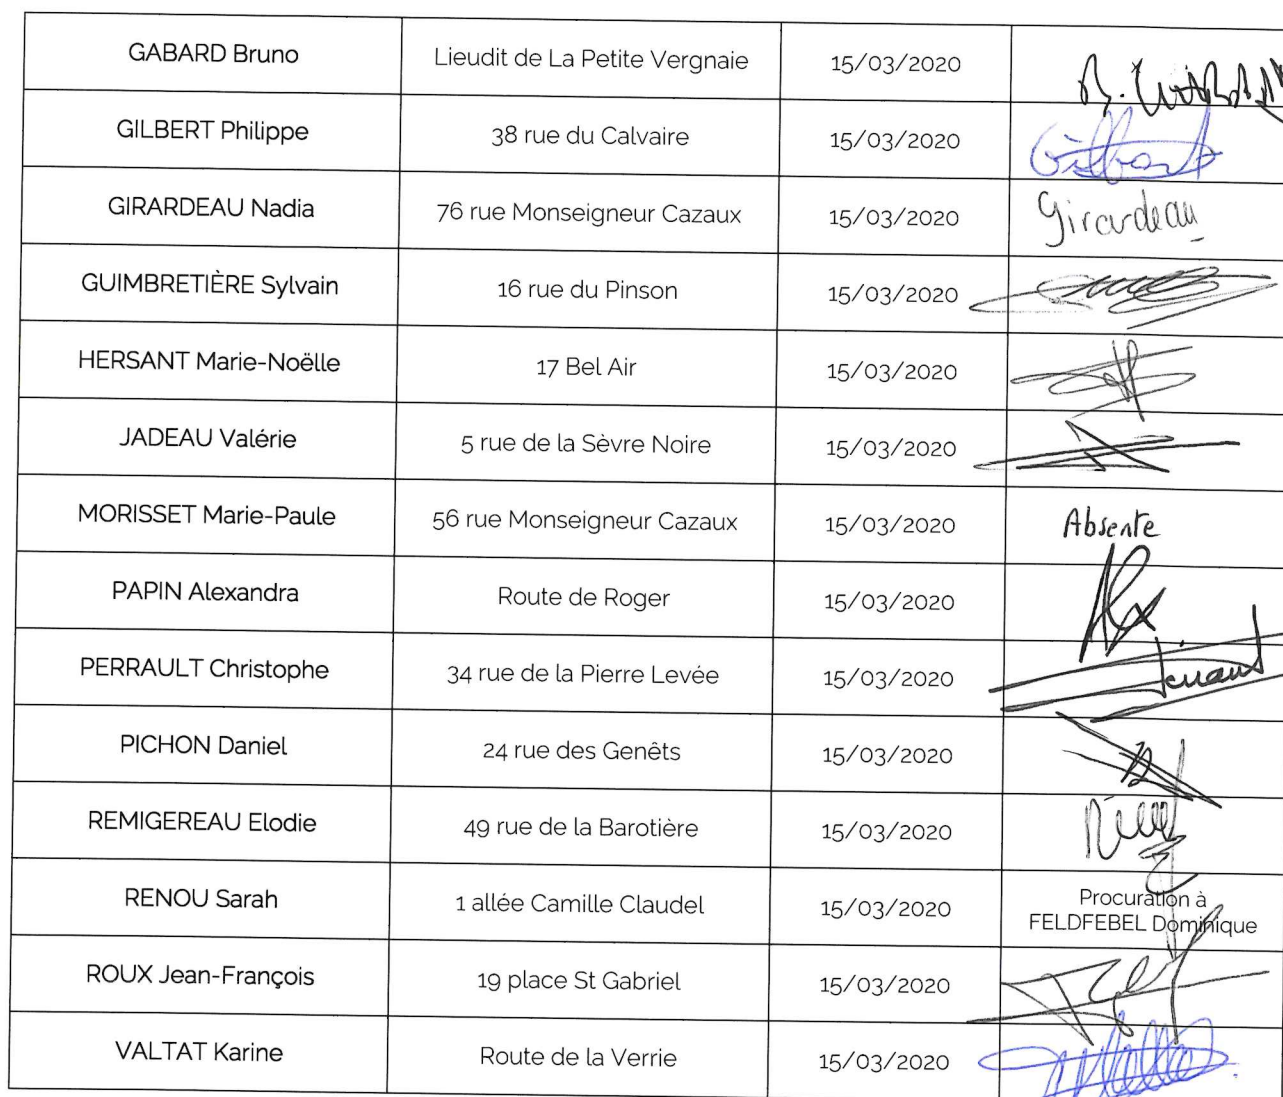 GABARD Bruno Lieudit de La Petite Vergnaie 15/03/2020
GILBERT Philippe 38 rue du Calvaire 15/03/2020 Gilbert
GIRARDEAU Nadia 76 rue Monseigneur Cazaux 15/03/2020 Girardeau
GUIMBRETIÈRE Sylvain 16 rue du Pinson 15/03/2020
HERSANT Marie-Noëlle 17 Bel Air 15/03/2020
JADEAU Valérie 5 rue de la Sèvre Noire 15/03/2020
MORISSET Marie-Paule 56 rue Monseigneur Cazaux 15/03/2020 Absente
PAPIN Alexandra Route de Roger 15/03/2020 Alex
PERRAULT Christophe 34 rue de la Pierre Levée 15/03/2020
PICHON Daniel 24 rue des Genêts 15/03/2020
REMIGEREAU Elodie 49 rue de la Barotière 15/03/2020
RENOU Sarah 1 allée Camille Claudel 15/03/2020 Procuration à
FELDFEBEL Dominique
ROUX Jean-François 19 place St Gabriel 15/03/2020
VALTAT Karine Route de la Verrie 15/03/2020